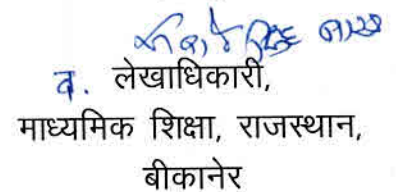 व. लेखाधिकारी,
माध्यमिक शिक्षा, राजस्थान,
बीकानेर